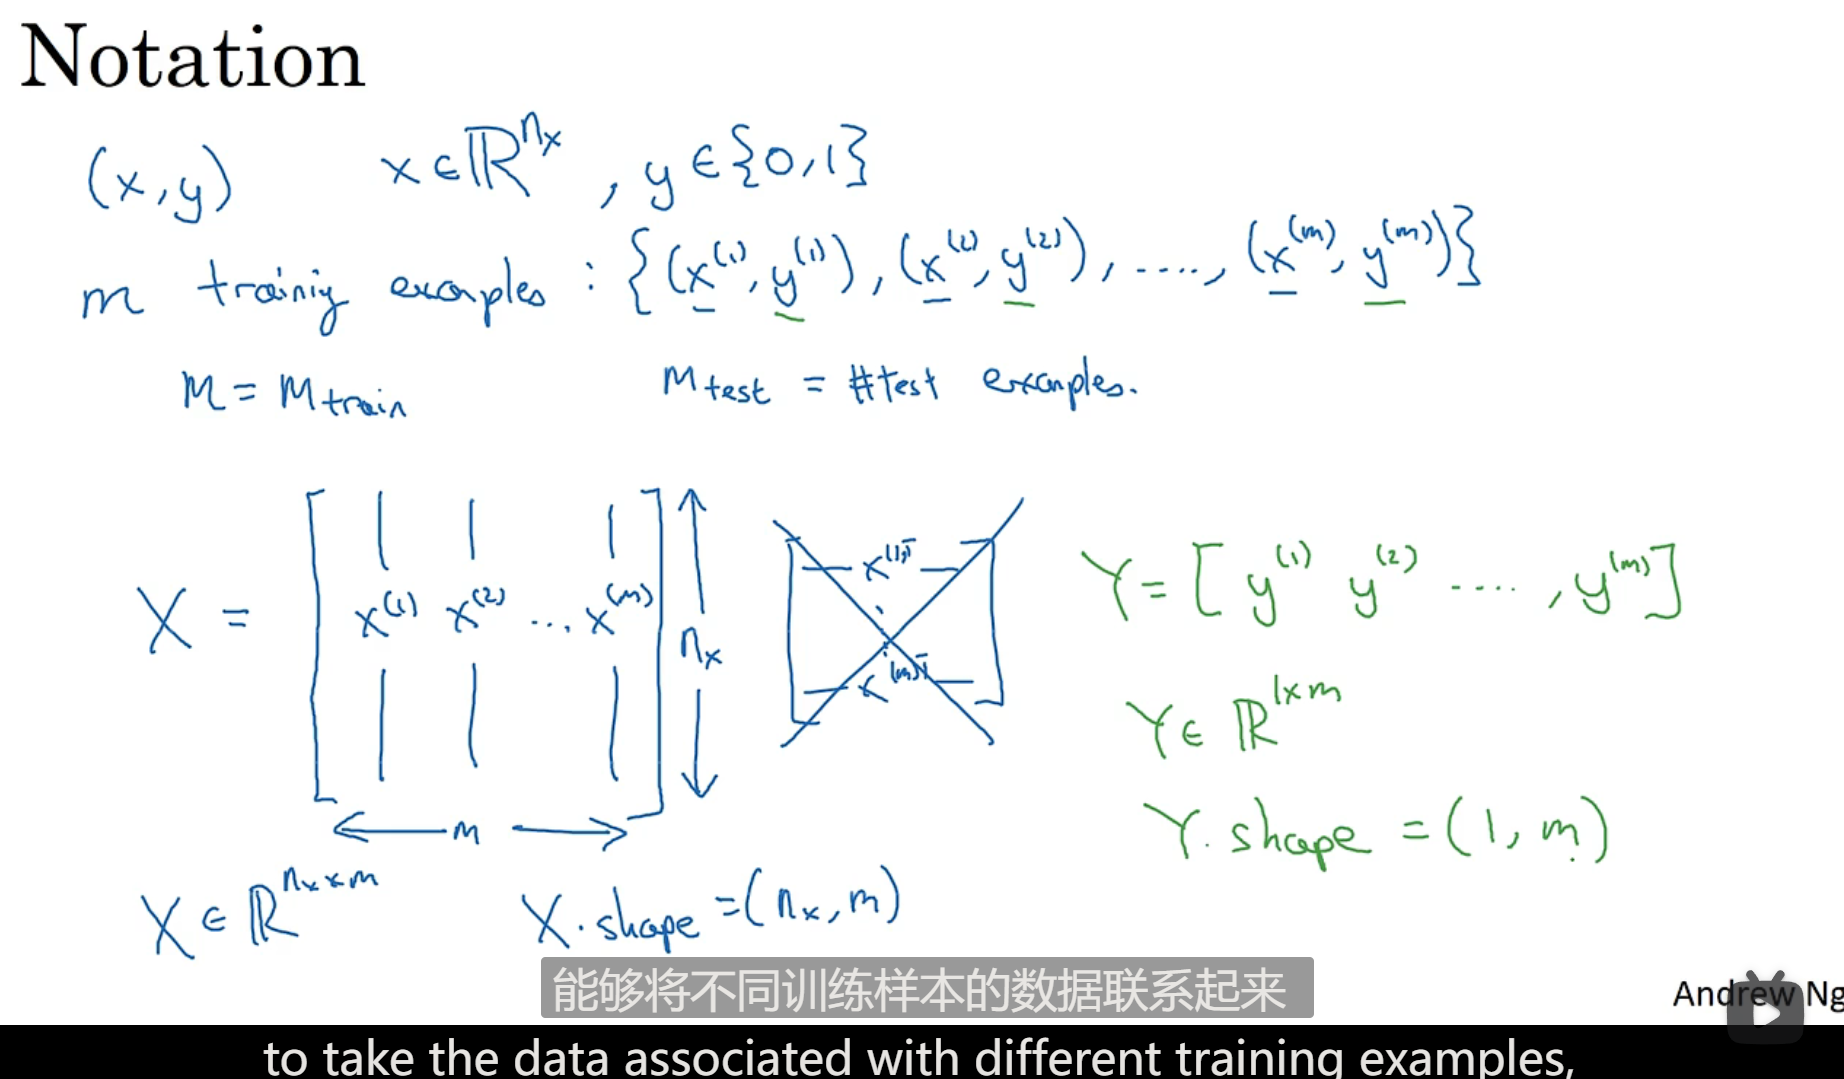 Notation
(x,y) x∈ℝ^{n_x}, y∈{0,1}
m training examples : {(x^{(1)}, y^{(1)}), (x^{(2)}, y^{(2)}), ....., (x^{(m)}, y^{(m)})}
M = M_{train} M_{test} = #test examples.
X = [x^{(1)} x^{(2)} ... x^{(m)}] n_x
m
x^{(1)T}
x^{(m)T}
Y = [y^{(1)} y^{(2)} ...., y^{(m)}]
Y ∈ ℝ^{1×m}
Y.shape = (1, m)
X ∈ ℝ^{n_x×m} X.shape = (n_x, m)
能够将不同训练样本的数据联系起来
Andrew Ng
to take the data associated with different training examples,